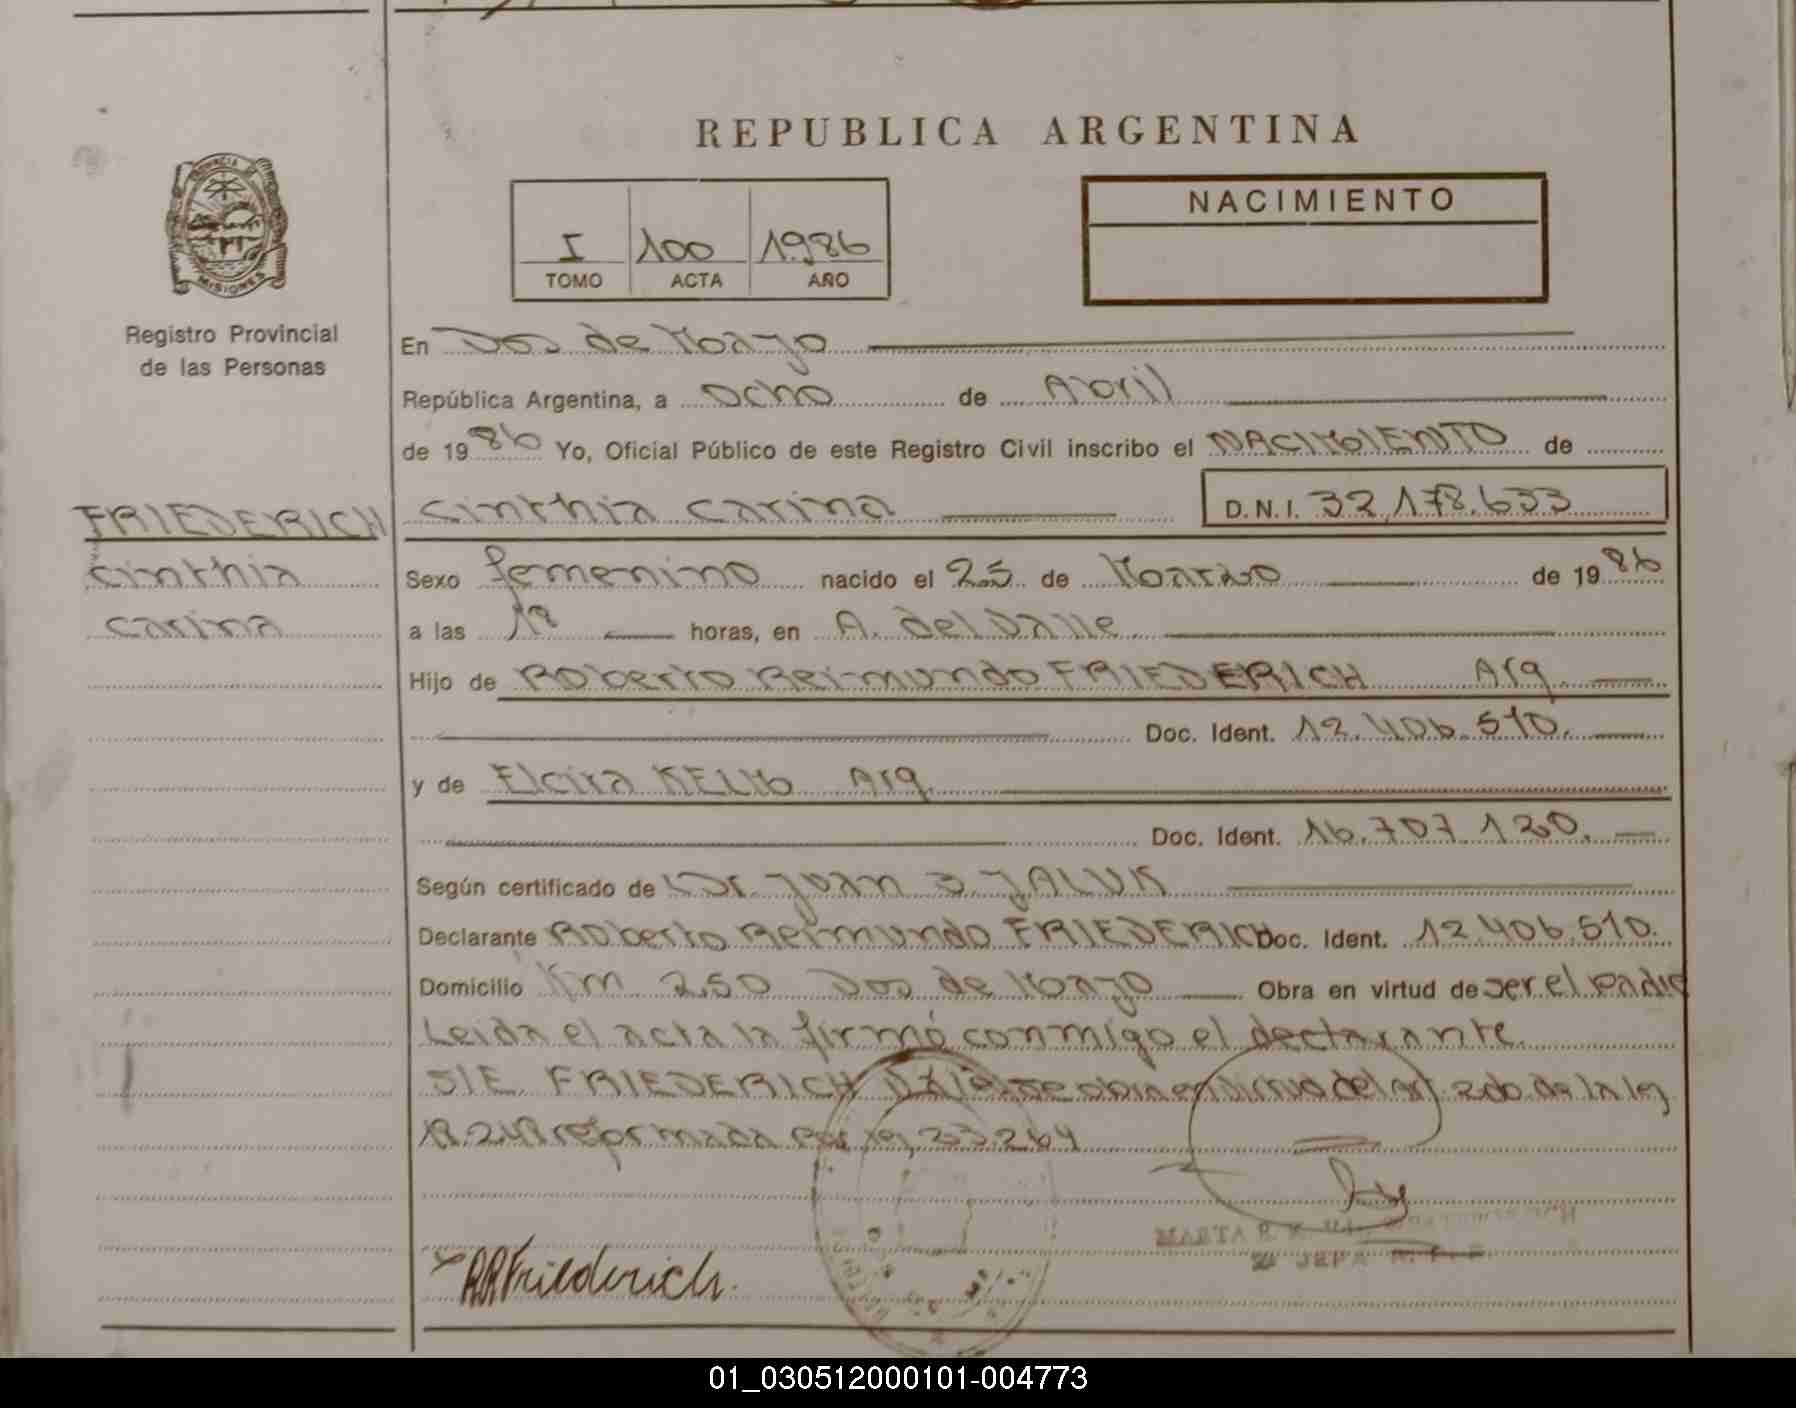 REPUBLICA ARGENTINA
PROVINCIA
MISIONES
Registro Provincial
de las Personas
I 100 1986
TOMO ACTA AÑO
NACIMIENTO
En Dos de Mayo
República Argentina, a Ocho de Abril
de 1986 Yo, Oficial Público de este Registro Civil inscribo el NACIMIENTO de
FRIEDERICH
Cinthia
Carina
Cinthia Carina D.N.I. 32,178.633
Sexo femenino nacido el 25 de Marzo de 1986
a las 18 horas, en A. del Valle
Hijo de Roberto Reimundo FRIEDERICH Arg
Doc. Ident. 12.406.510.
y de Elcira KELM Arg
Doc. Ident. 16.707.120.
Según certificado de Dr. Juan JALUK
Declarante Roberto Reimundo FRIEDERICH Doc. Ident. 12.406.510.
Domicilio Km 250 Dos de Mayo Obra en virtud de ser el padre
Leida el acta la firmó conmigo el declarante
S/E FRIEDERICH Vale se obra en virtud del art. 2do. de la ley
reformada por ley 23.264
RRFriederich.
MARTA
JEFA
01_030512000101-004773